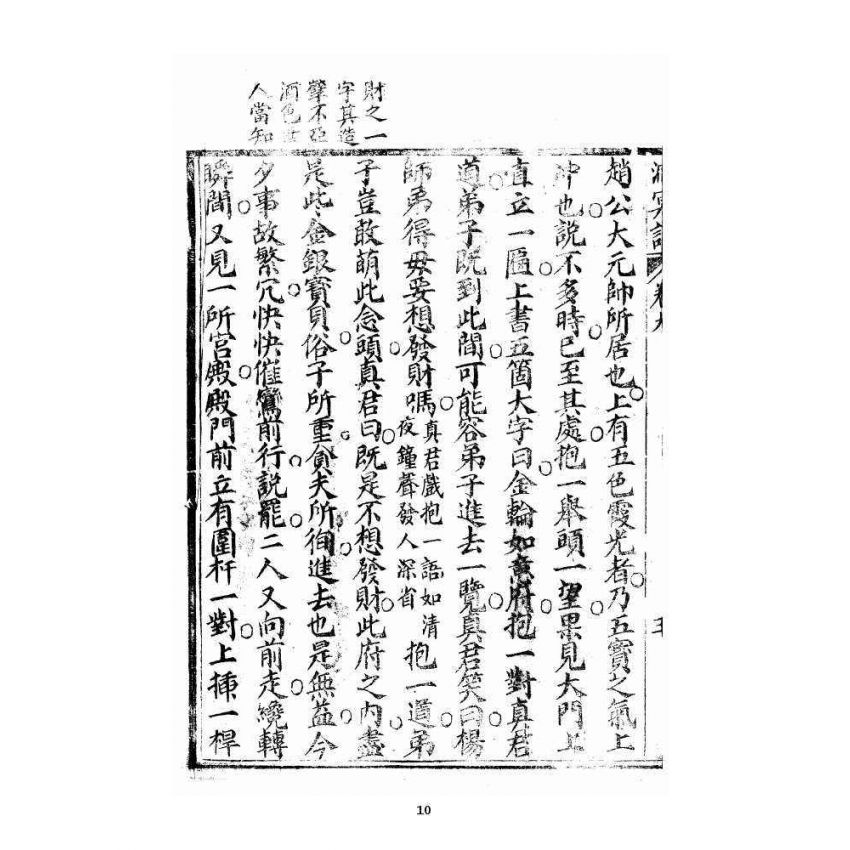 財之一
字其造
孽不亞
酒色世
人當知
洞冥記 卷九 五
趙公大元帥所居也上有五色霞光者乃五寶之氣上
冲也說不多時已至其處抱一舉頭一望果見大門上
直立一匾上書五箇大字曰金輪如意府抱一對真君
道弟子既到此間可能容弟子進去一覽真君笑曰楊
師弟得毋妄想發財嗎真君戲抱一語如清夜鐘聲發人深省抱一道弟
子豈敢萌此念頭真君曰既是不想發財此府之內盡
是些金銀寶貝俗子所重貪夫所徇進去也是無益今
夕事故繁冗快快催鸞前行說罷二人又向前走繞轉
瞬間又見一所宮殿殿門前立有圍杆一對上插一桿
10